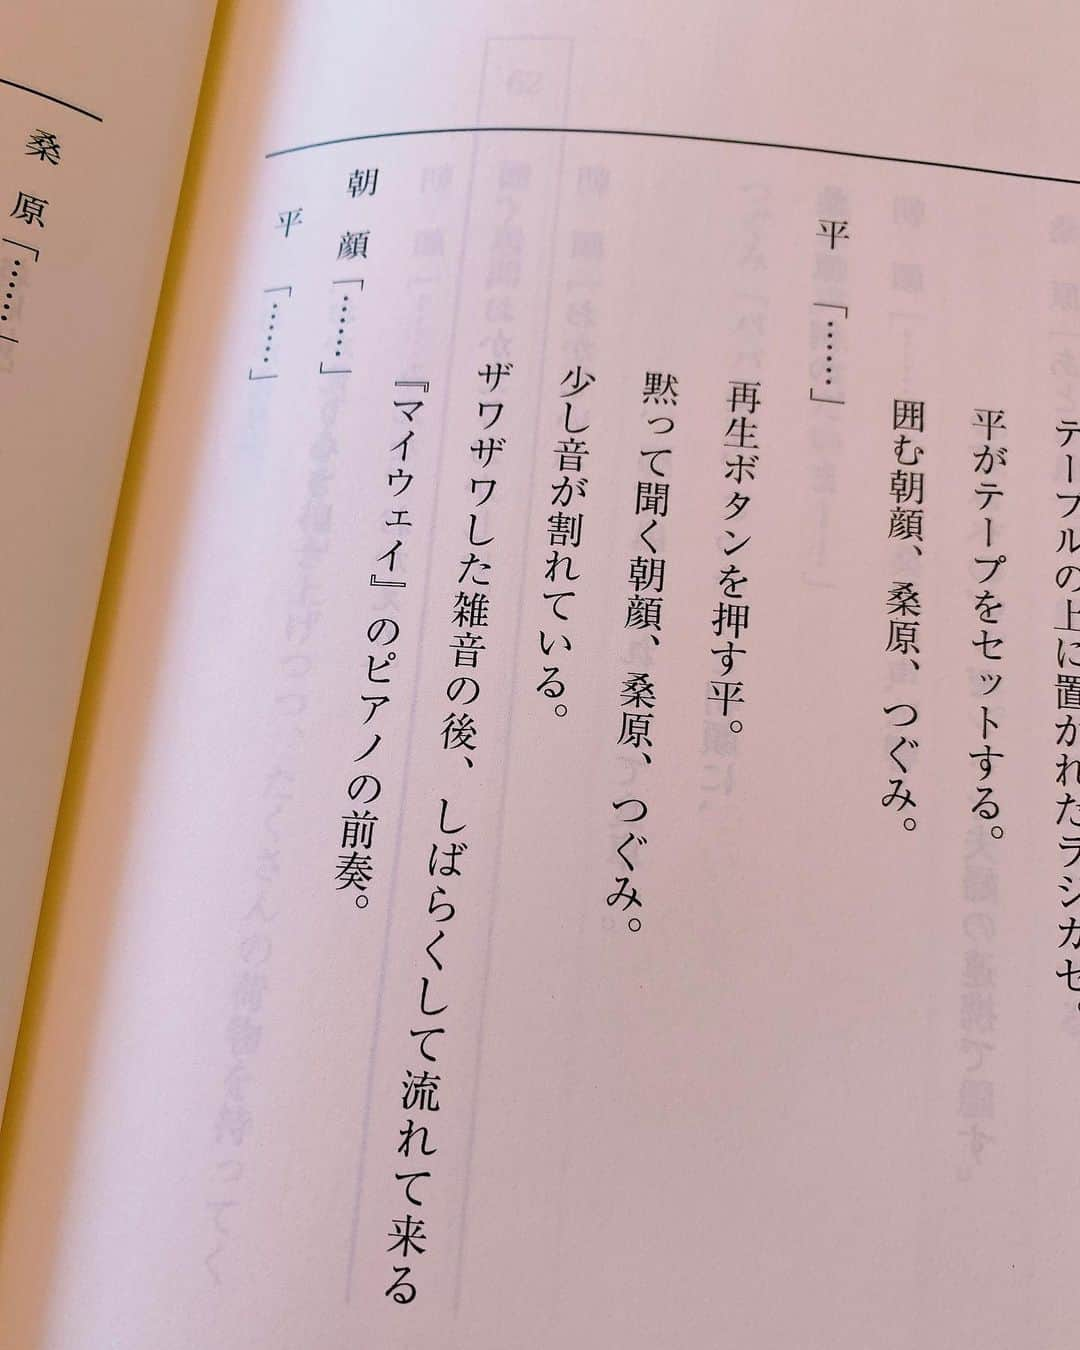 テーブルの上に置かれたラジカセ。
平がテープをセットする。
囲む朝顔、桑原、つぐみ。
平「……」
再生ボタンを押す平。
黙って聞く朝顔、桑原、つぐみ。
少し音が割れている。
ザワザワした雑音の後、しばらくして流れて来る
『マイウェイ』のピアノの前奏。
朝顔「……」
平「……」
桑原「……」